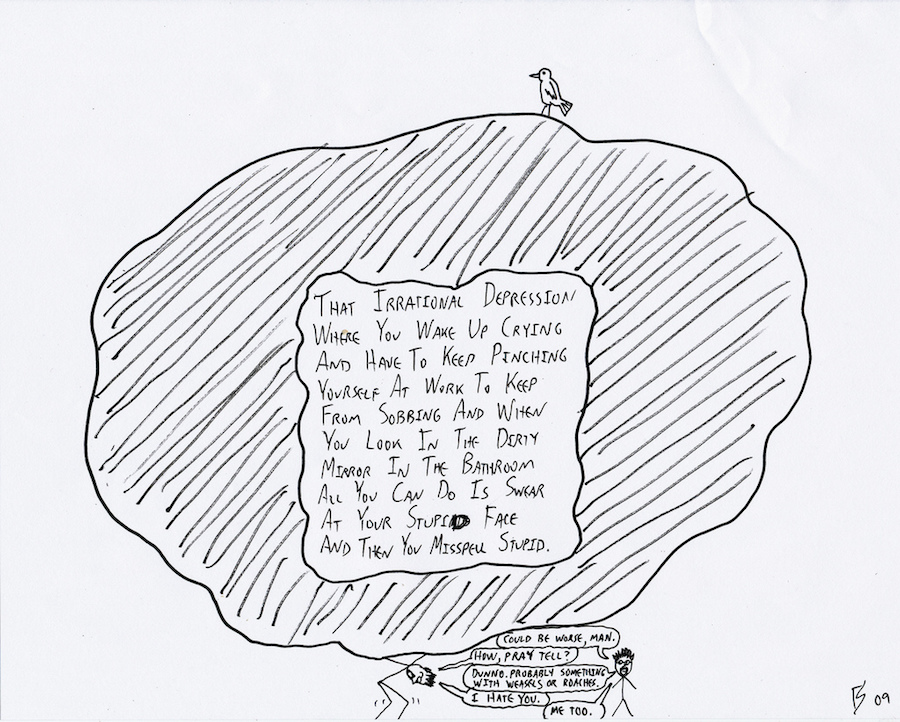 THAT IRRATIONAL DEPRESSION
WHERE YOU WAKE UP CRYING
AND HAVE TO KEEP PINCHING
YOURSELF AT WORK TO KEEP
FROM SOBBING AND WHEN
YOU LOOK IN THE DIRTY
MIRROR IN THE BATHROOM
ALL YOU CAN DO IS SWEAR
AT YOUR STUPID FACE
AND THEN YOU MISSPELL STUPID.
COULD BE WORSE, MAN.
HOW, PRAY TELL?
DUNNO. PROBABLY SOMETHING
WITH WEASELS OR ROACHES.
I HATE YOU.
ME TOO.
09